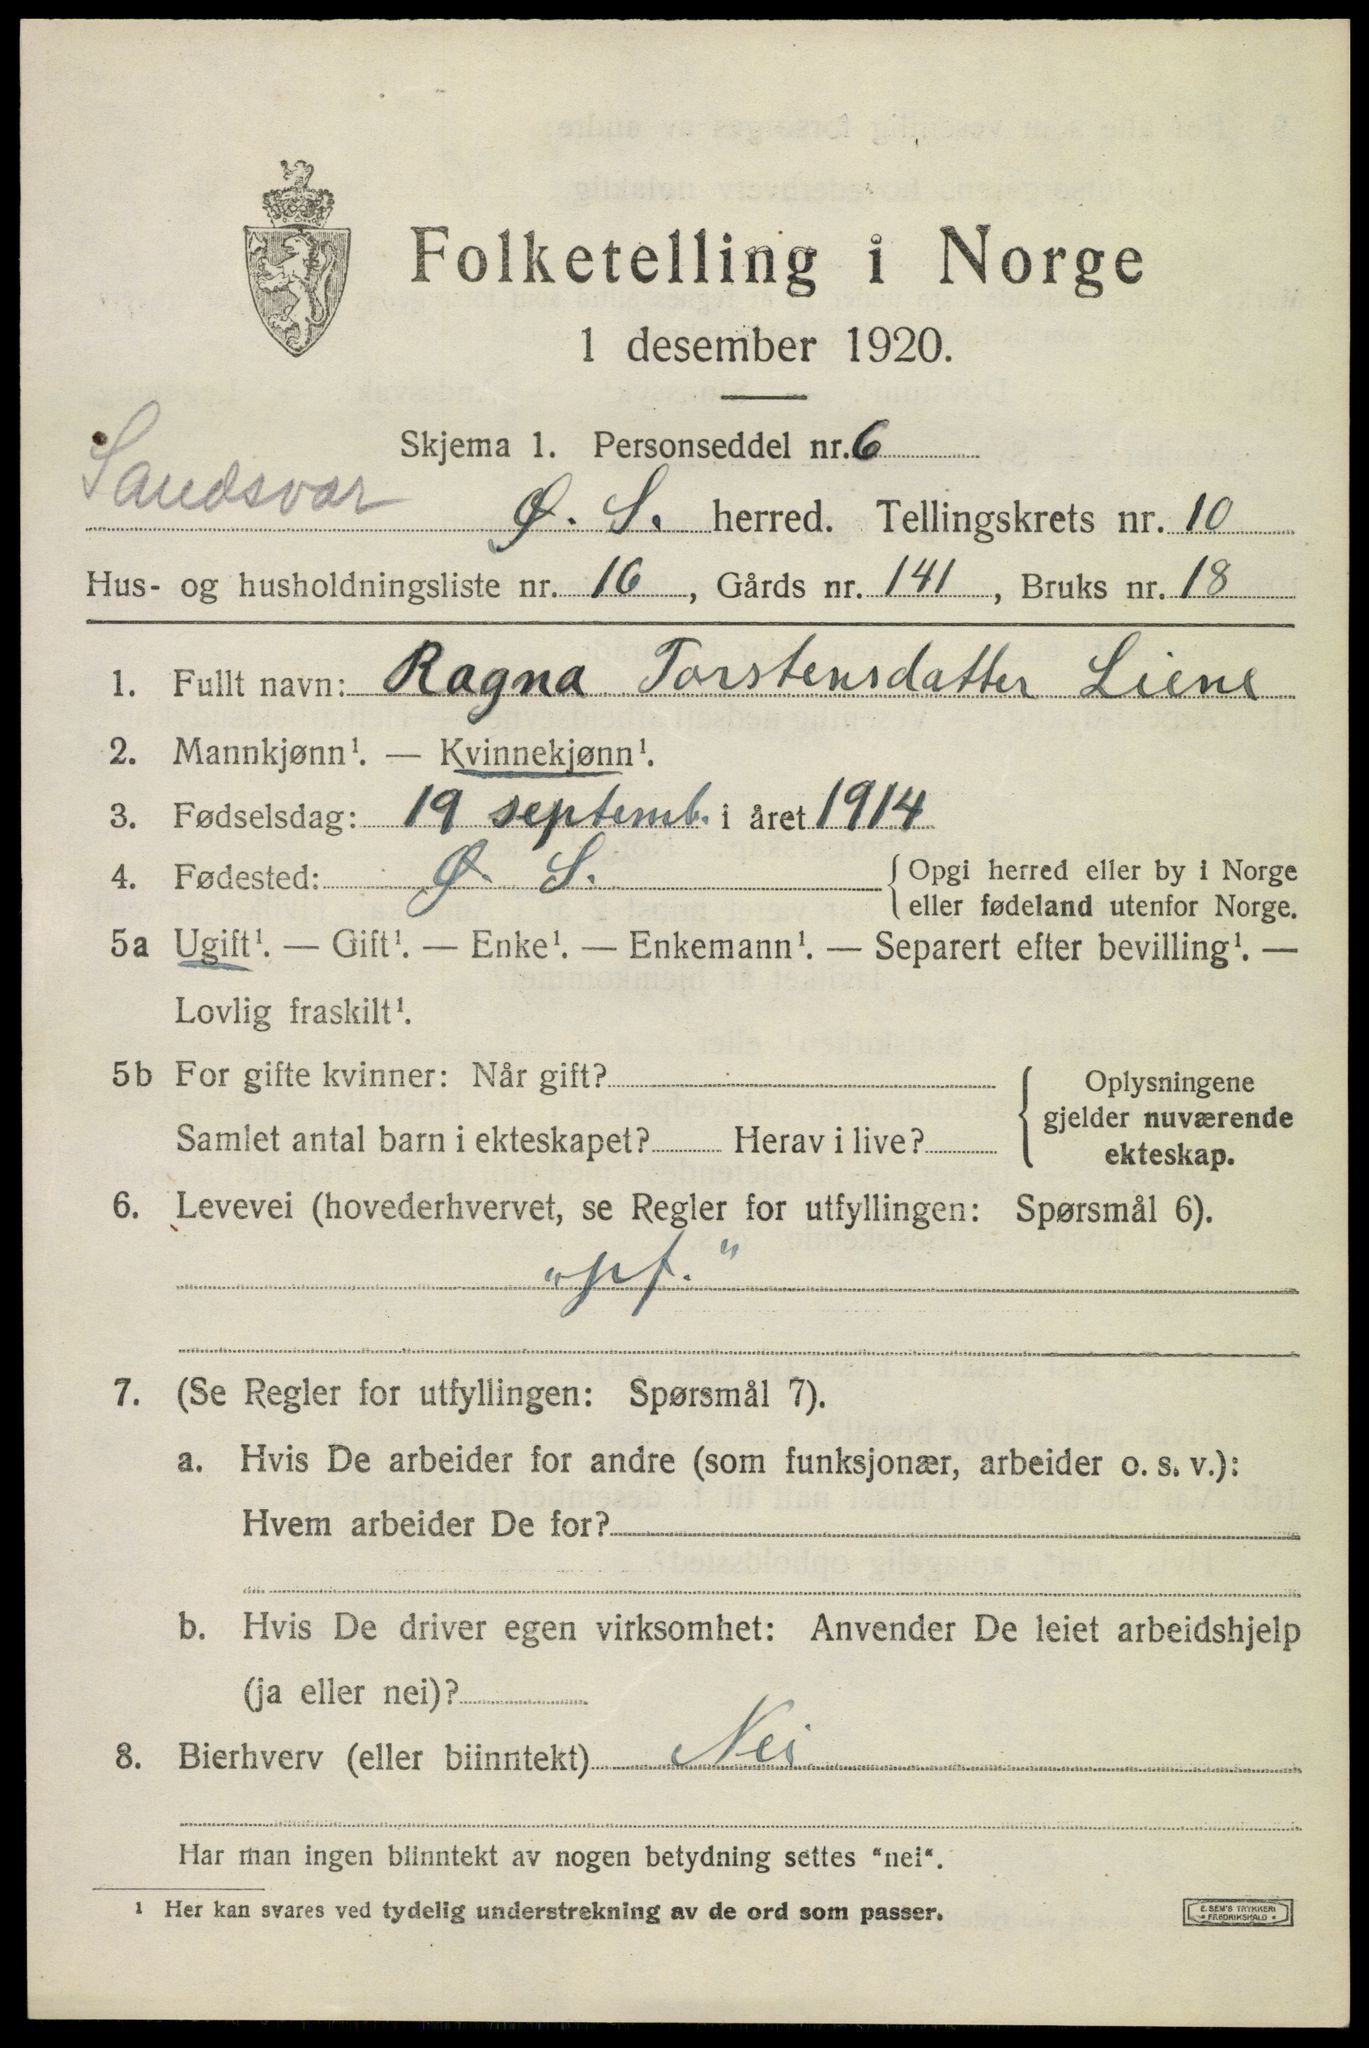 Folketelling i Norge
1 desember 1920.
Skjema 1. Personseddel nr. 6
Sandsvar
Ø. S. herred. Tellingskrets nr. 10
Hus- og husholdningsliste nr. 16, Gårds nr. 141, Bruks nr. 18
1. Fullt navn: Ragna Torstensdatter Liene
2. Mannkjønn¹. — Kvinnekjønn¹.
3. Fødselsdag: 19 septemb. i året 1914
4. Fødested: Ø. S. { Opgi herred eller by i Norge
eller fødeland utenfor Norge.
5a Ugift¹. — Gift¹. — Enke¹. — Enkemann¹. — Separert efter bevilling¹. —
Lovlig fraskilt¹.
5b For gifte kvinner: Når gift?
Samlet antal barn i ekteskapet? Herav i live?
{ Oplysningene
gjelder nuværende
ekteskap.
6. Levevei (hovederhvervet, se Regler for utfyllingen: Spørsmål 6).
"pf."
7. (Se Regler for utfyllingen: Spørsmål 7).
a. Hvis De arbeider for andre (som funksjonær, arbeider o. s. v.):
Hvem arbeider De for?
b. Hvis De driver egen virksomhet: Anvender De leiet arbeidshjelp
(ja eller nei)?
8. Bierhverv (eller biinntekt) Nei
Har man ingen biinntekt av nogen betydning settes "nei".
¹ Her kan svares ved tydelig understrekning av de ord som passer.
E. SEM'S TRYKKERI
FREDRIKSHALD